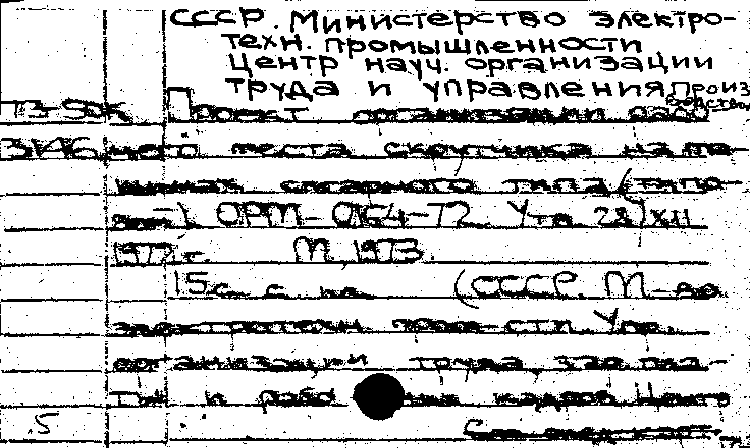 СССР. Министерство электро-
техн. промышленности
Центр науч. организации
труда и управления произ
Т3-50К Проект организации рабо
чего места скрутчика на ма-
шинах сигарного типа (типо-
ОРМ-0164-72. Утв 28/XII
1972 г. М, 1973.
15 с. с ил. (СССР. М-во
электротехн. пром-сти. Упр.
организации труда, зар. пла-
ты и рабо кадров. Центр
5